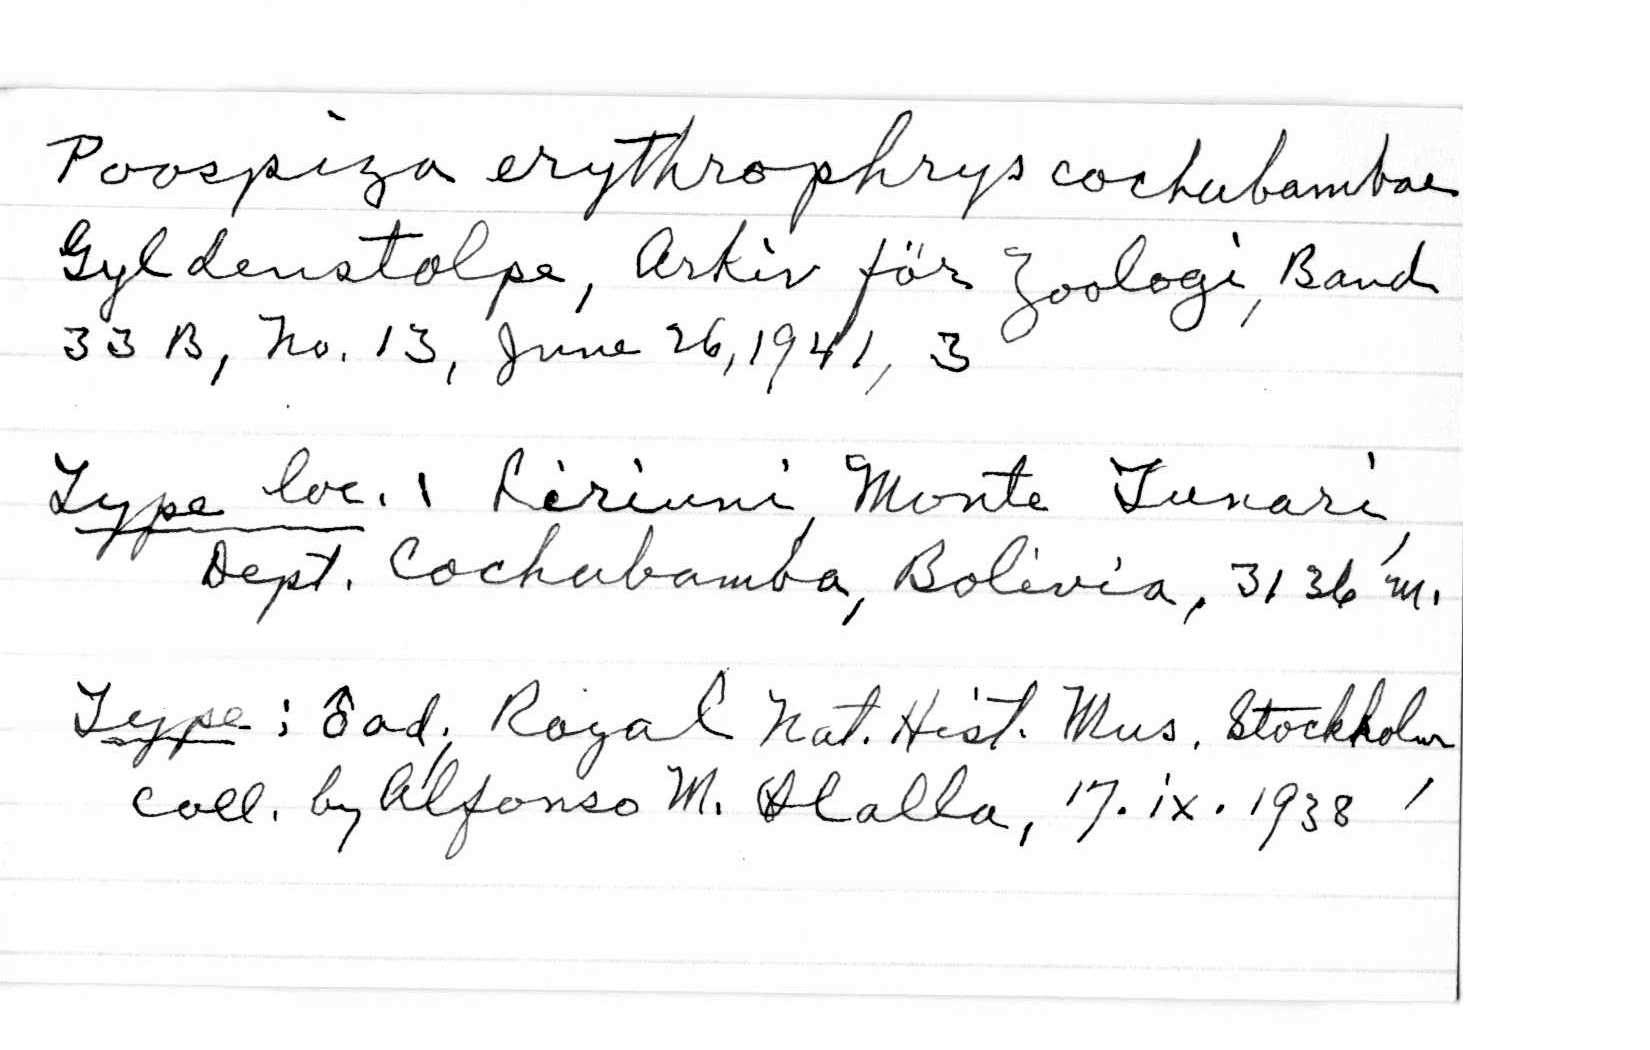 Poospiza erythrophrys cochabambae
Gyldenstolpe, Arkiv för Zoologi, Band
33 B, No. 13, June 26, 1941, 3
Type loc.: Liriuni, Monte Tunari,
Dept. Cochabamba, Bolivia, 3136 m.
Type: ad., Royal Nat. Hist. Mus. Stockholm,
coll. by Alfonso M. Olalla, 17.ix.1938